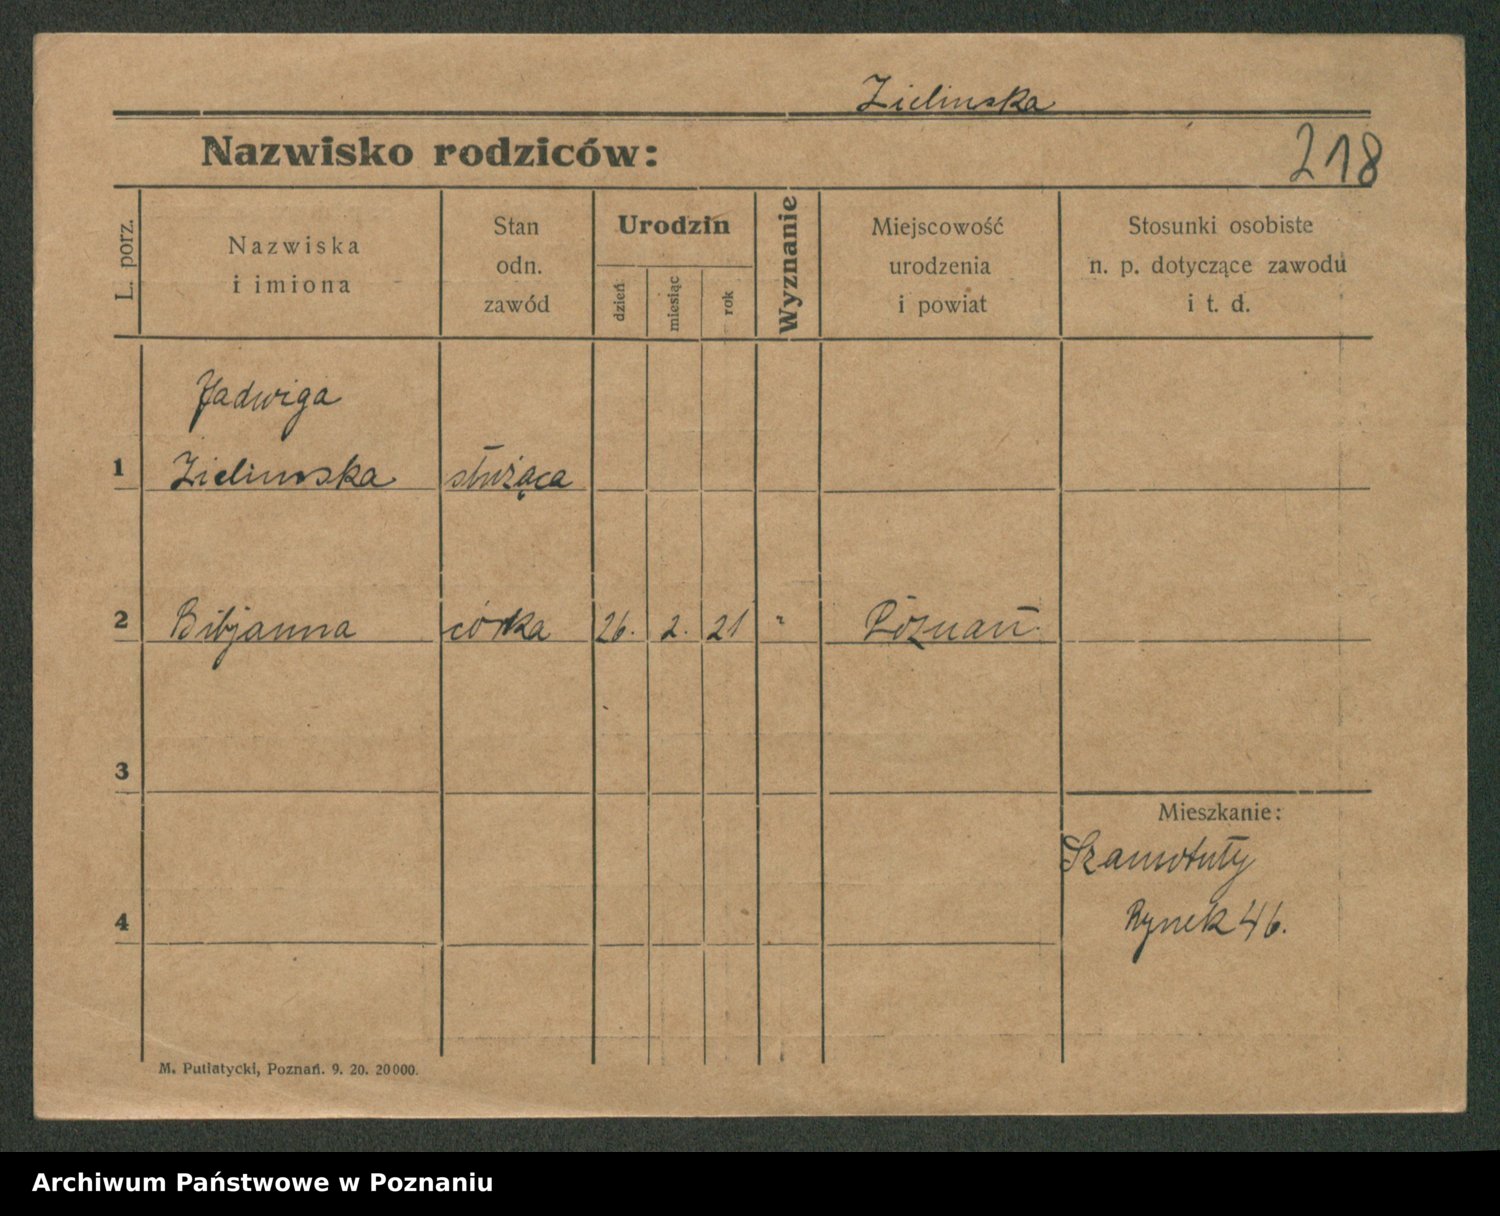 Zielinska
Nazwisko rodziców:
218
L. porz.
Nazwiska
i imiona
Stan
odn.
zawód
Urodzin
dzień
miesiąc
rok
Wyznanie
Miejscowość
urodzenia
i powiat
Stosunki osobiste
n. p. dotyczące zawodu
i t. d.
Jadwiga
1 Zielinska służąca
2 Bibjanna córka 26. 2. 21 " Poznań
3
Mieszkanie:
Szamotuły
4
Rynek 46.
M. Putiatycki, Poznań. 9. 20. 20000.
Archiwum Państwowe w Poznaniu